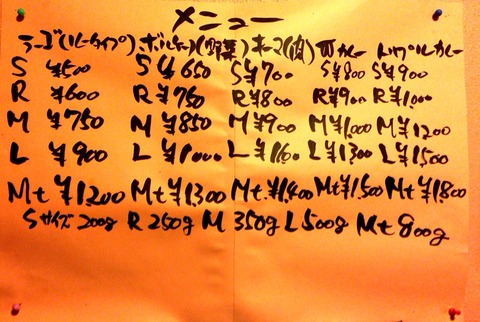 メニュー
(ルータイプ) (野菜) (肉) Wカレー トリプルカレー
S ¥500 S ¥650 S¥700 S¥800 S¥900
R ¥600 R ¥750 R¥800 R¥900 R¥1000
M ¥750 M ¥850 M¥900 M¥1,000 M¥1200
L ¥900 L ¥1000 L ¥1100 L¥1300 L¥1,500
Mt ¥1200 Mt¥1,300 Mt.¥1,400 Mt¥1,500 Mt ¥1,800
Sサイズ 200g R 250g M 350g L 500g Mt 800g